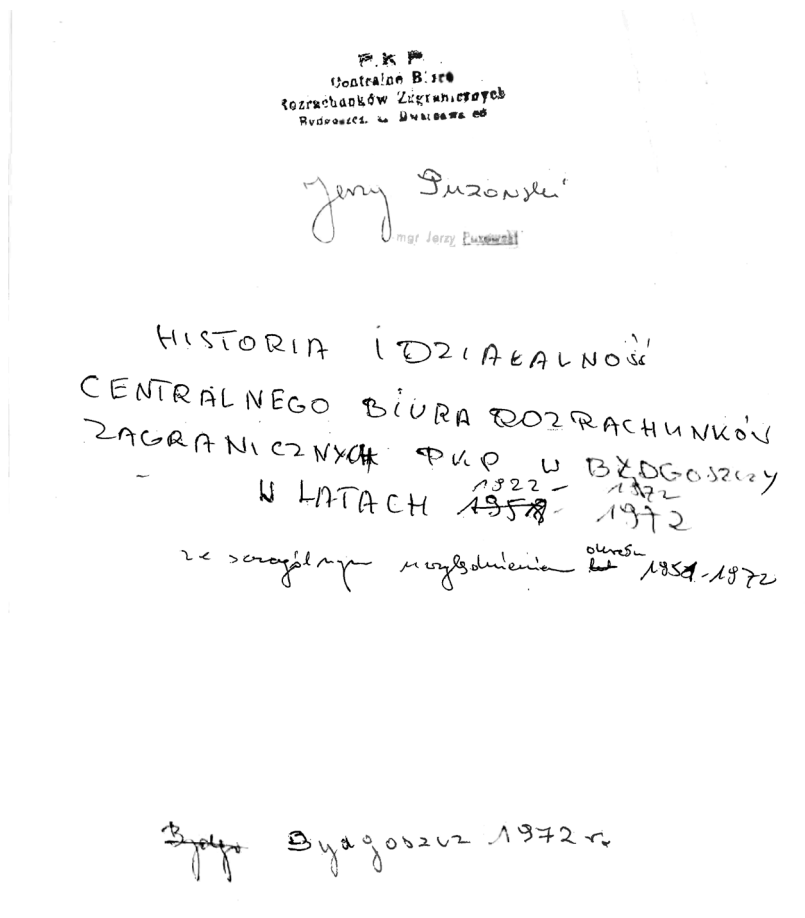 P.K.P.
Centralne Biuro
Rozrachunków Zagranicznych
Bydgoszcz, ul. Dworcowa 63
Jerzy Puzowski
mgr Jerzy Puzowski
HISTORIA I DZIAŁALNOŚĆ
CENTRALNEGO BIURA ROZRACHUNKÓW
ZAGRANICZNYCH PKP W BYDGOSZCZY
1922 - 1972
W LATACH 1958 - 1972
okresu
ze szczególnym uwzględnieniem lat 1951-1972
Bydgo Bydgoszcz 1972 r.